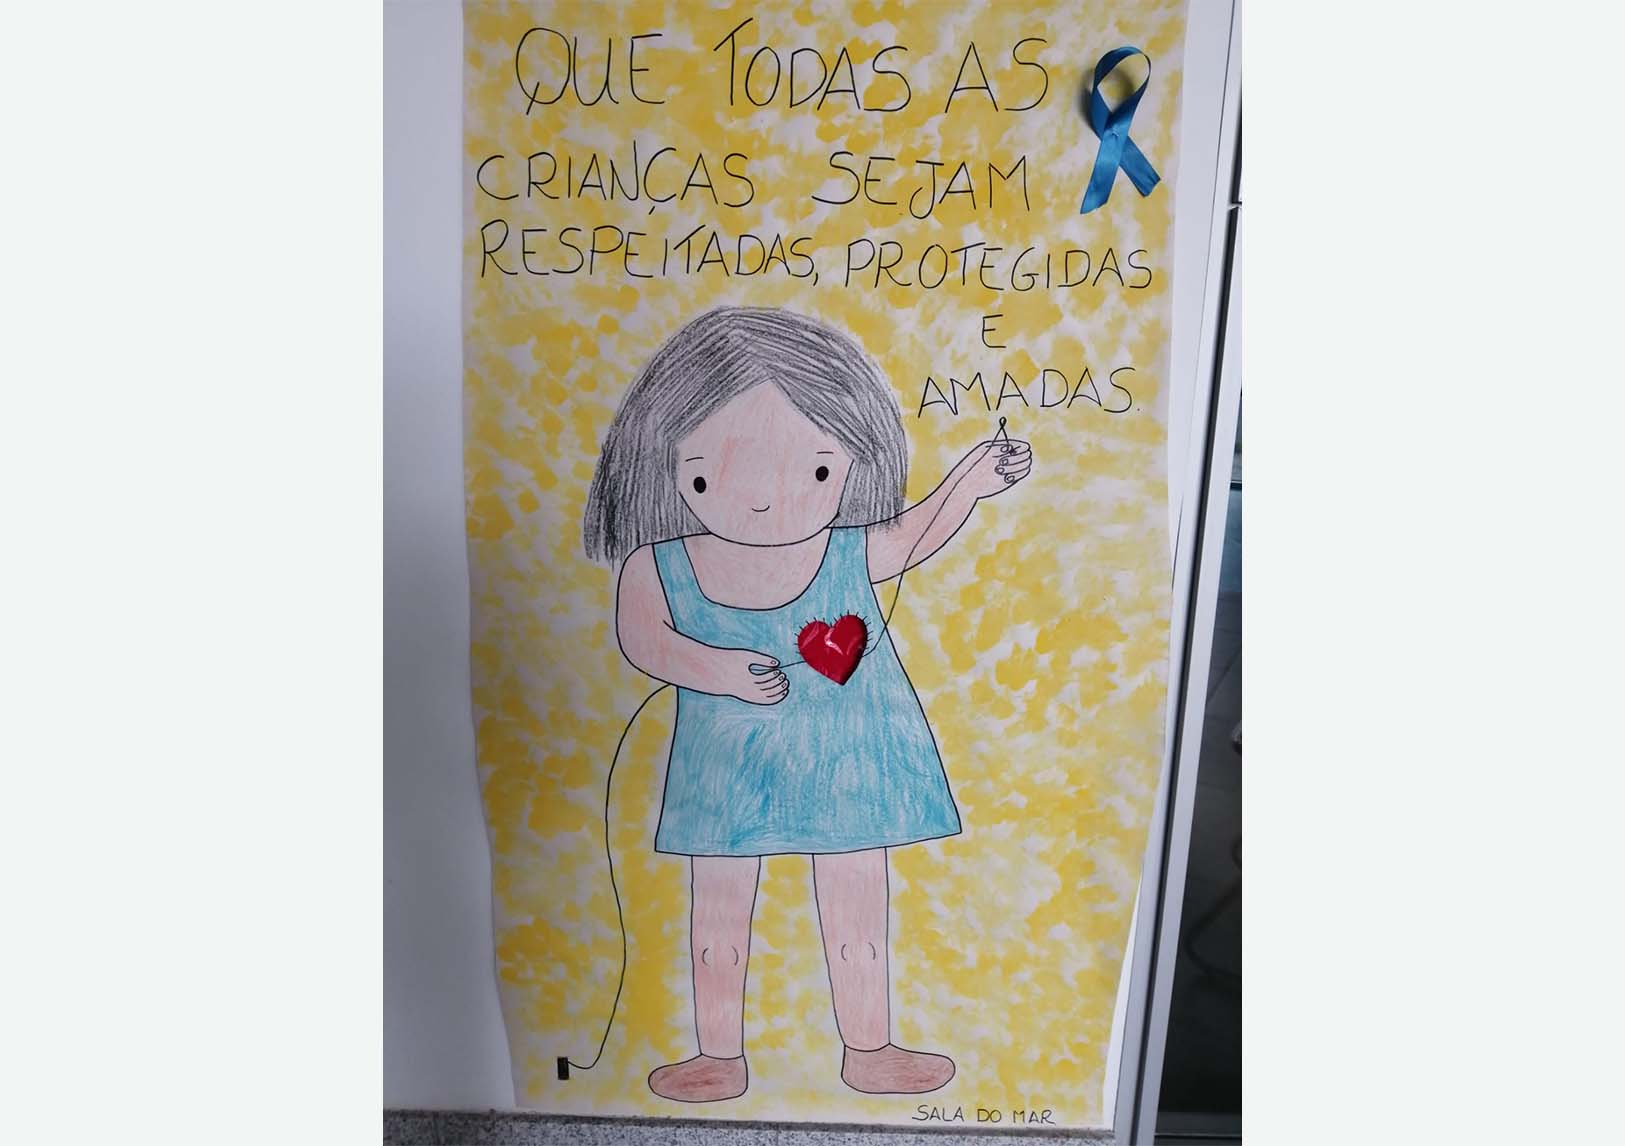 QUE TODAS AS
CRIANÇAS SEJAM
RESPEITADAS, PROTEGIDAS
E
AMADAS.
SALA DO MAR